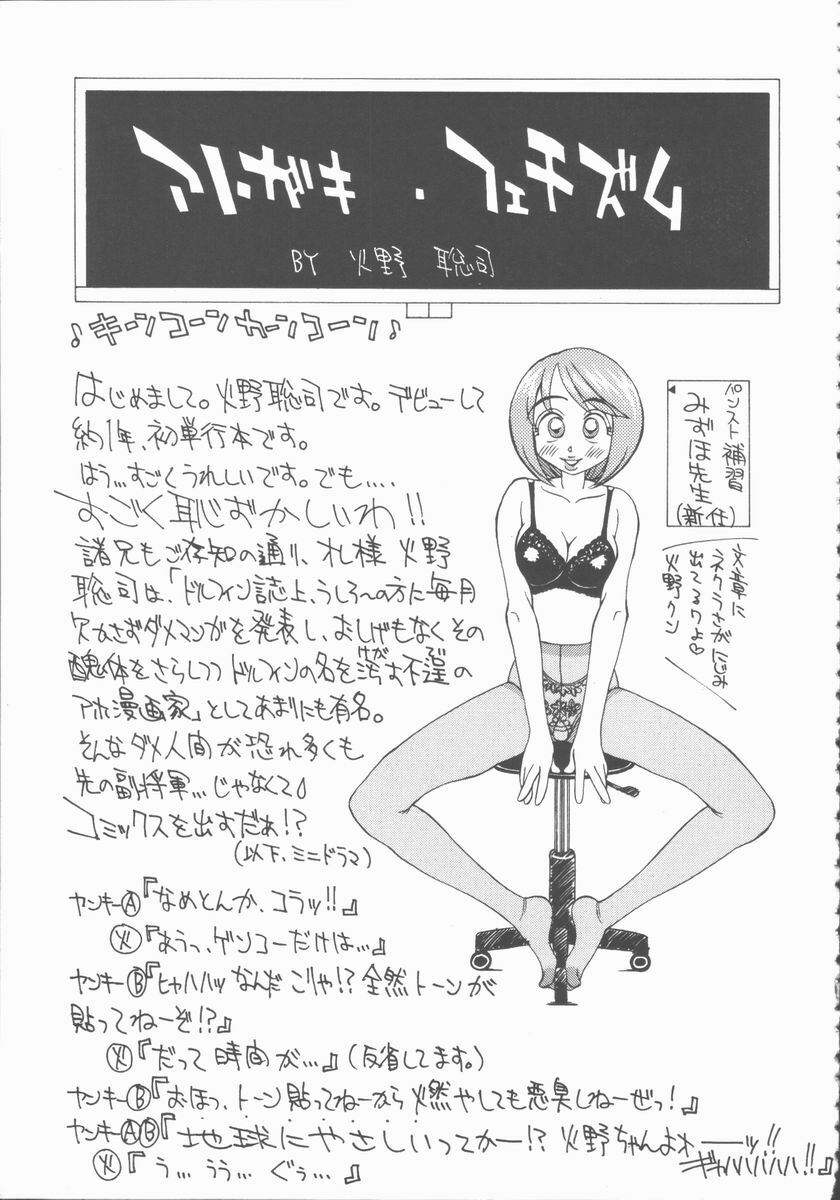 BY 火野 聡司
♪キーンコーンカーンコーン♪
はじめまして。火野聡司です。デビューして
約1年、初単行本です。
はう…すごくうれしいです。でも….
すごく恥ずかしいわ!!
諸兄もご存知の通り、オレ様 火野
聡司は、「ドルフィン誌上、うしろ〜の方に毎月
欠かさずダメマンガを発表し、おしげもなくその
醜体をさらしつつドルフィンの名を汚す不逞の
アホ漫画家」としてあまりにも有名。
そんなダメ人間が恐れ多くも
先の副将軍…じゃなくて♪
コミックスを出すだぁ!?
(以下、ミニドラマ)
ヤンキーⒶ『なめとんか、コラッ!!』
火『あうっ、ゲンコーだけは…』
ヤンキーⒷ『ヒャハハッ なんだ こりゃ!? 全然トーンが
貼ってねーぞ!?』
火『だって 時間が…』(反省してます。)
ヤンキーⒷ『おほっ、トーン貼ってねーから燃やしても悪臭しねーぜっ!』
ヤンキーⒶⒷ『地球にやさしいってかー!? 火野ちゃんよォーーッ!!
ギャハハハハ!!』
火『う… うう… ぐぅ…』
パンスト補習
みずほ先生
(新任)
文章に
ネクラさがにじみ
出てるワよ♡
火野クン